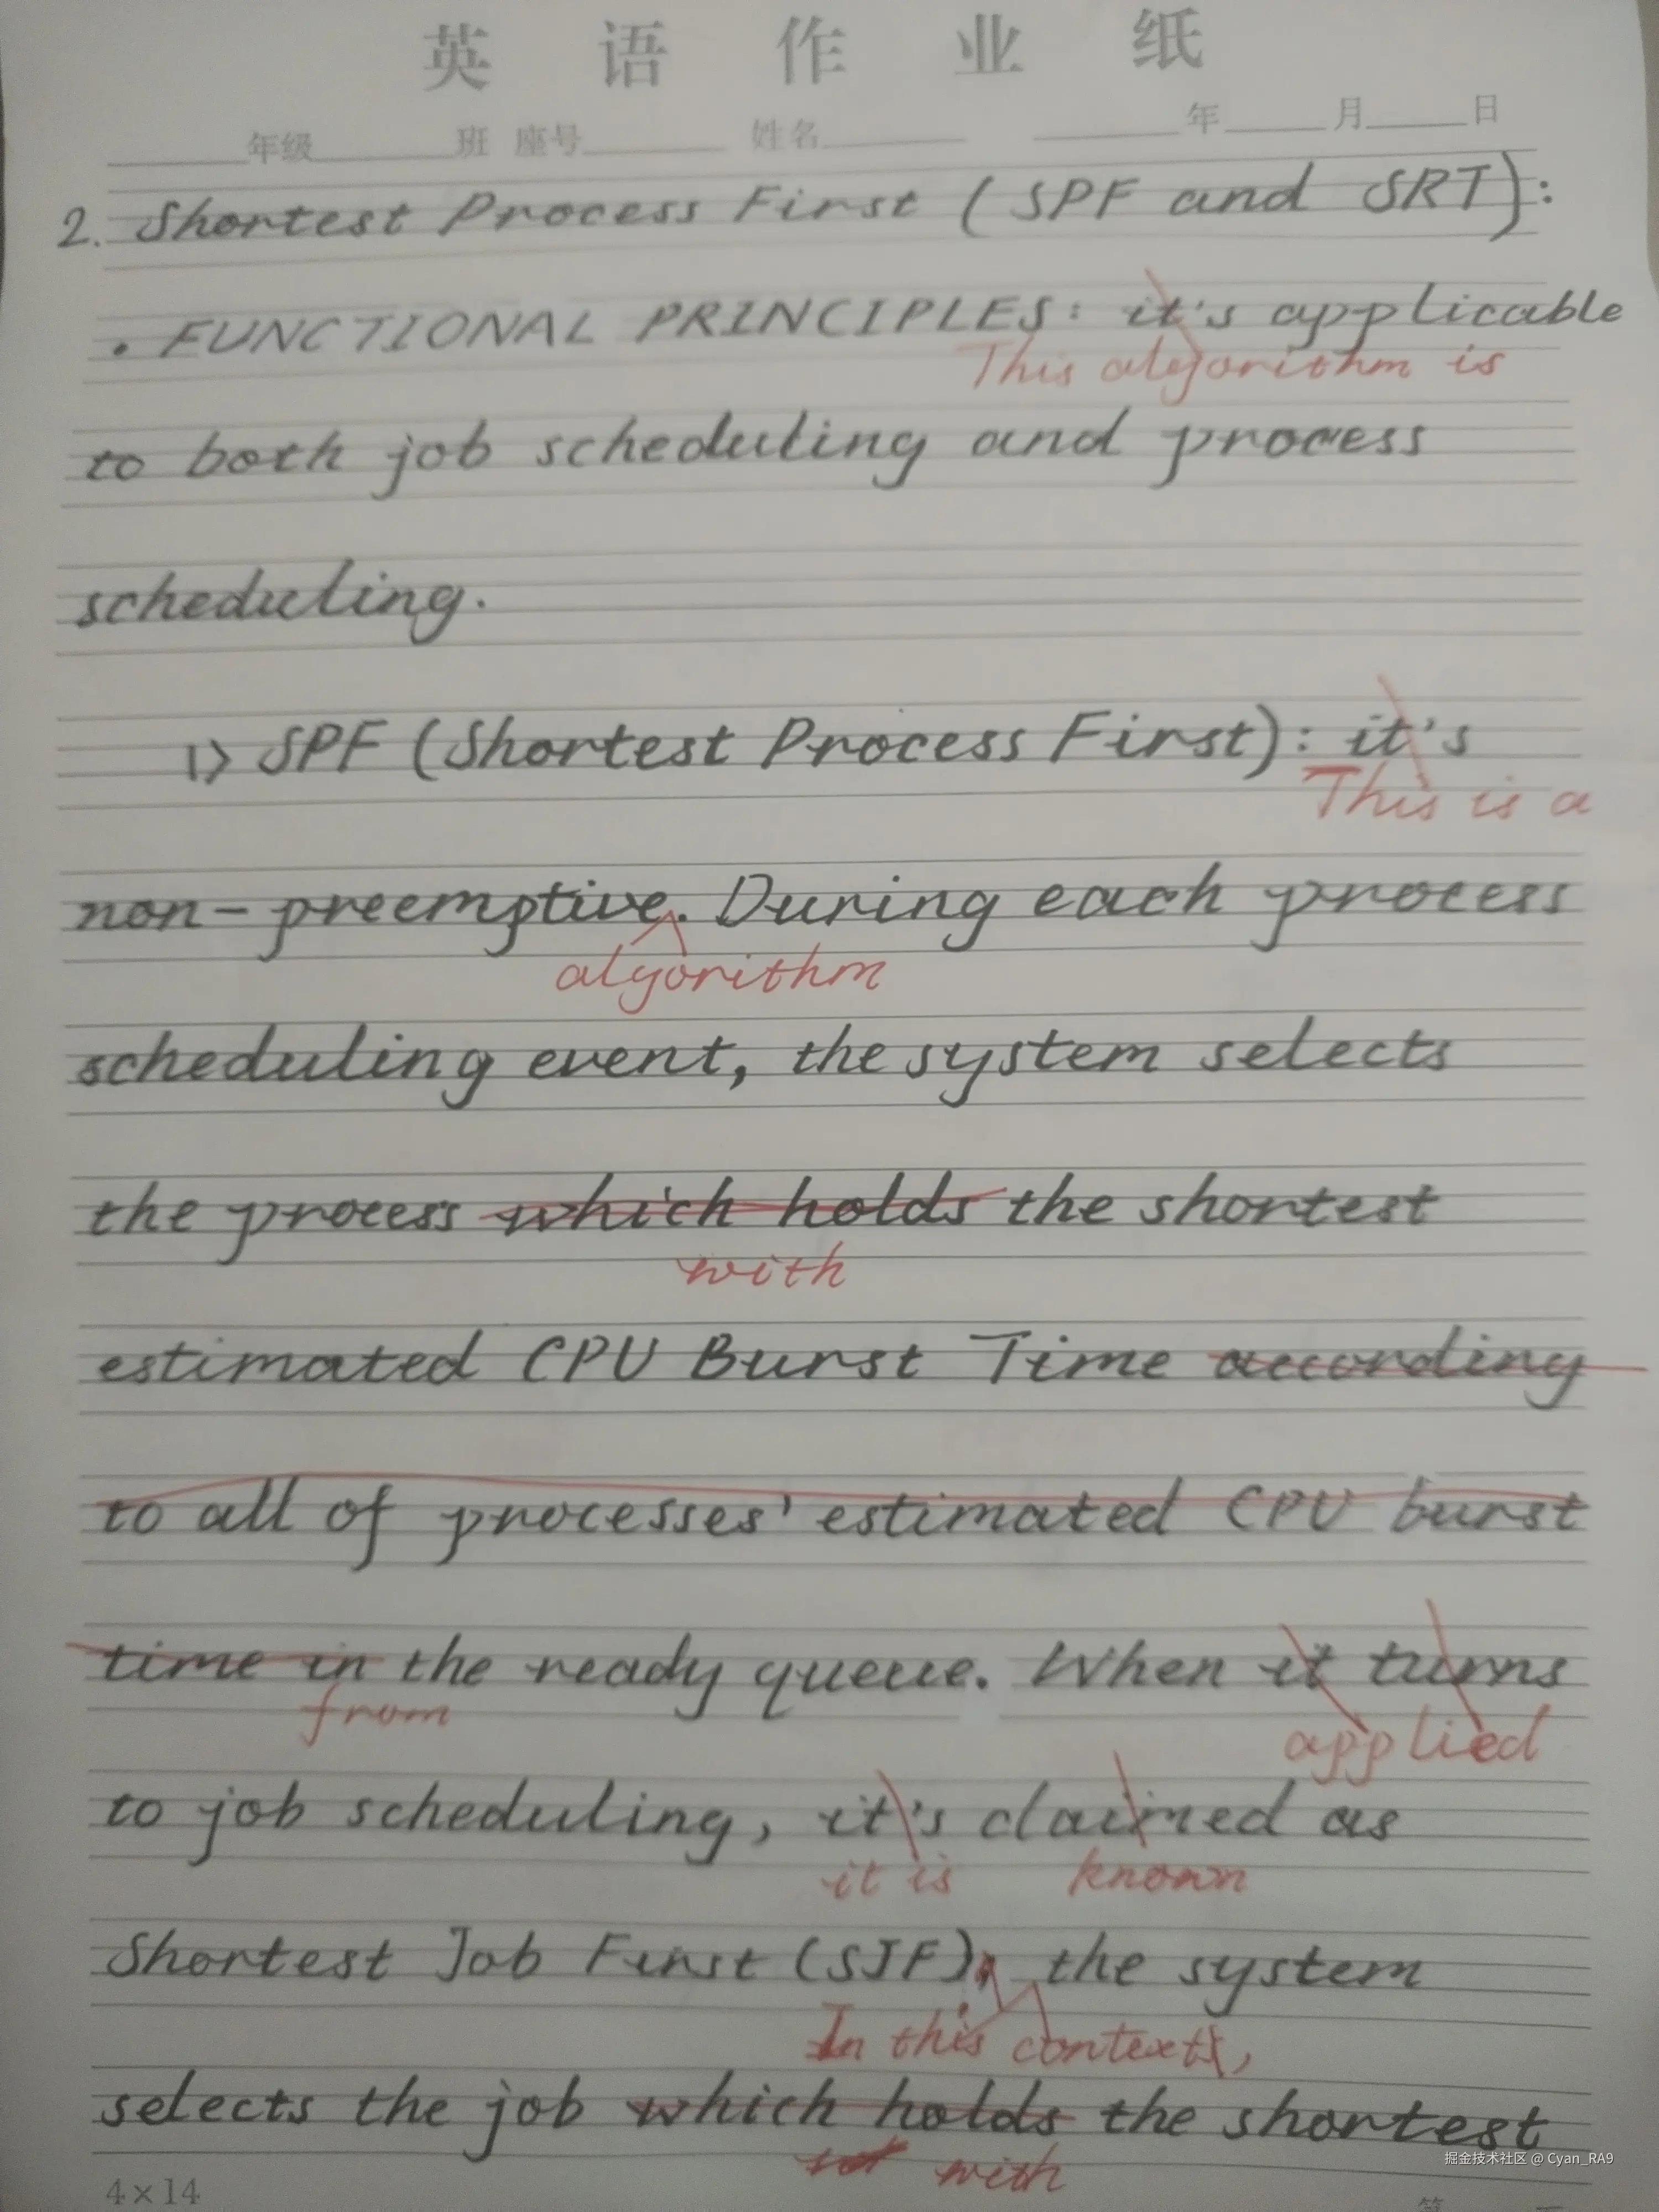 英 语 作 业 纸
年级 班 座号 姓名 年 月 日
2. Shortest Process First (SPF and SRT):
• FUNCTIONAL PRINCIPLES: it's applicable
This algorithm is
to both job scheduling and process
scheduling.
1> SPF (Shortest Process First): it's
This is a
non-preemptive. During each process
algorithm
scheduling event, the system selects
the process which holds the shortest
with
estimated CPU Burst Time according
to all of processes' estimated CPU burst
time in the ready queue. When it turns
from applied
to job scheduling, it's claimed as
it is known
Shortest Job First (SJF). the system
In this context,
selects the job which holds the shortest
with
4×14
掘金技术社区 @ Cyan_RA9